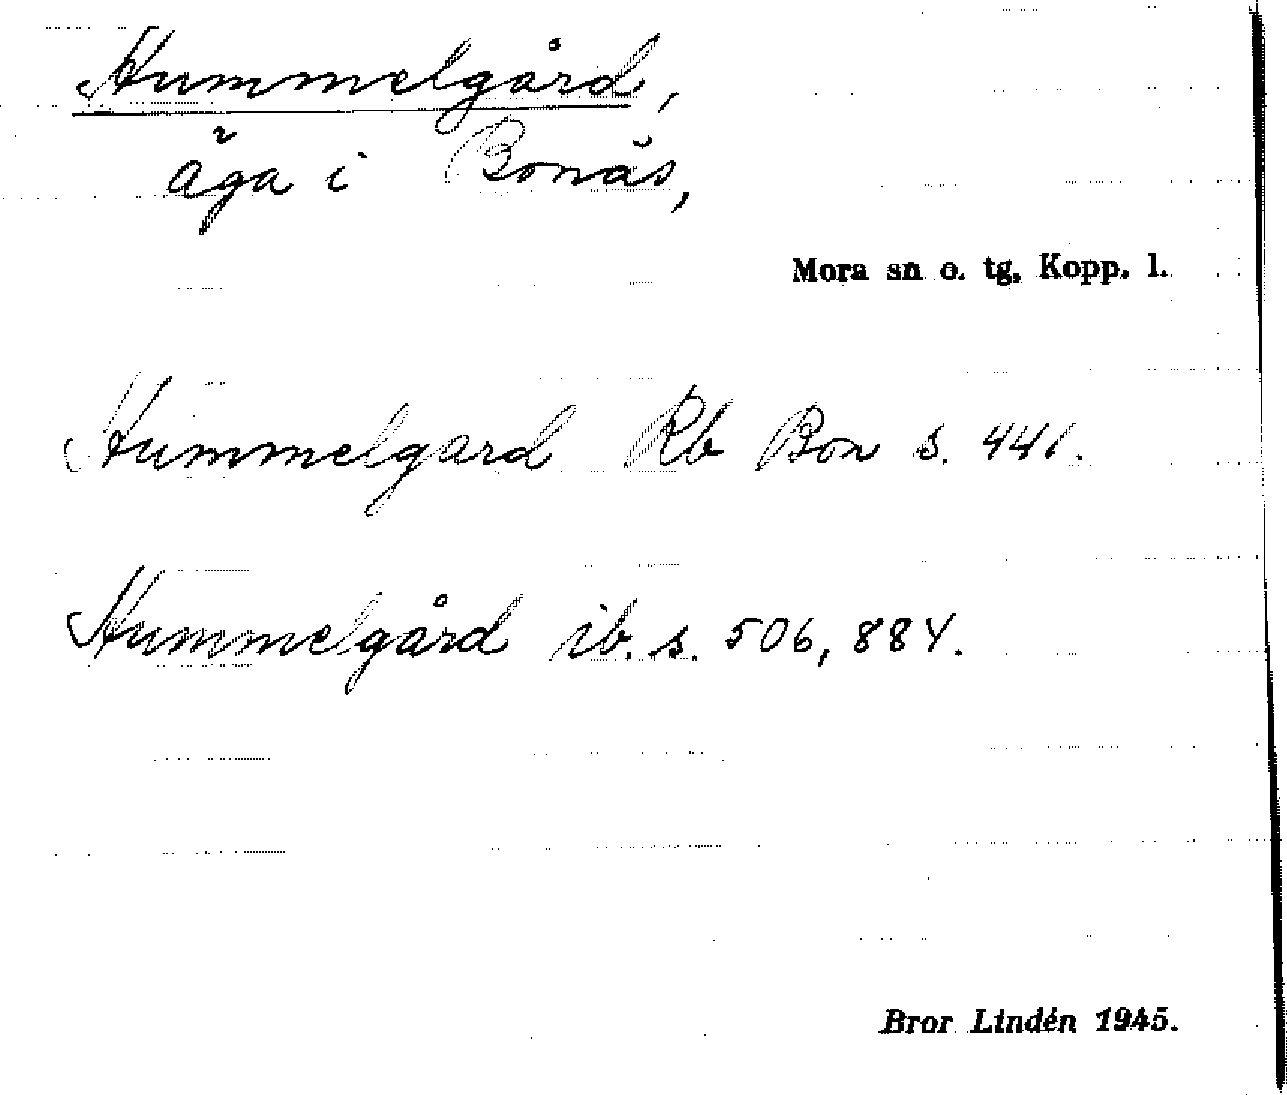 Hummelgård,
äga i Bonäs,
Mora sn o. tg. Kopp. l.
Hummelgard Rb Bon s. 441.
Hummelgård ib. s. 506, 884.
Bror Lindén 1945.